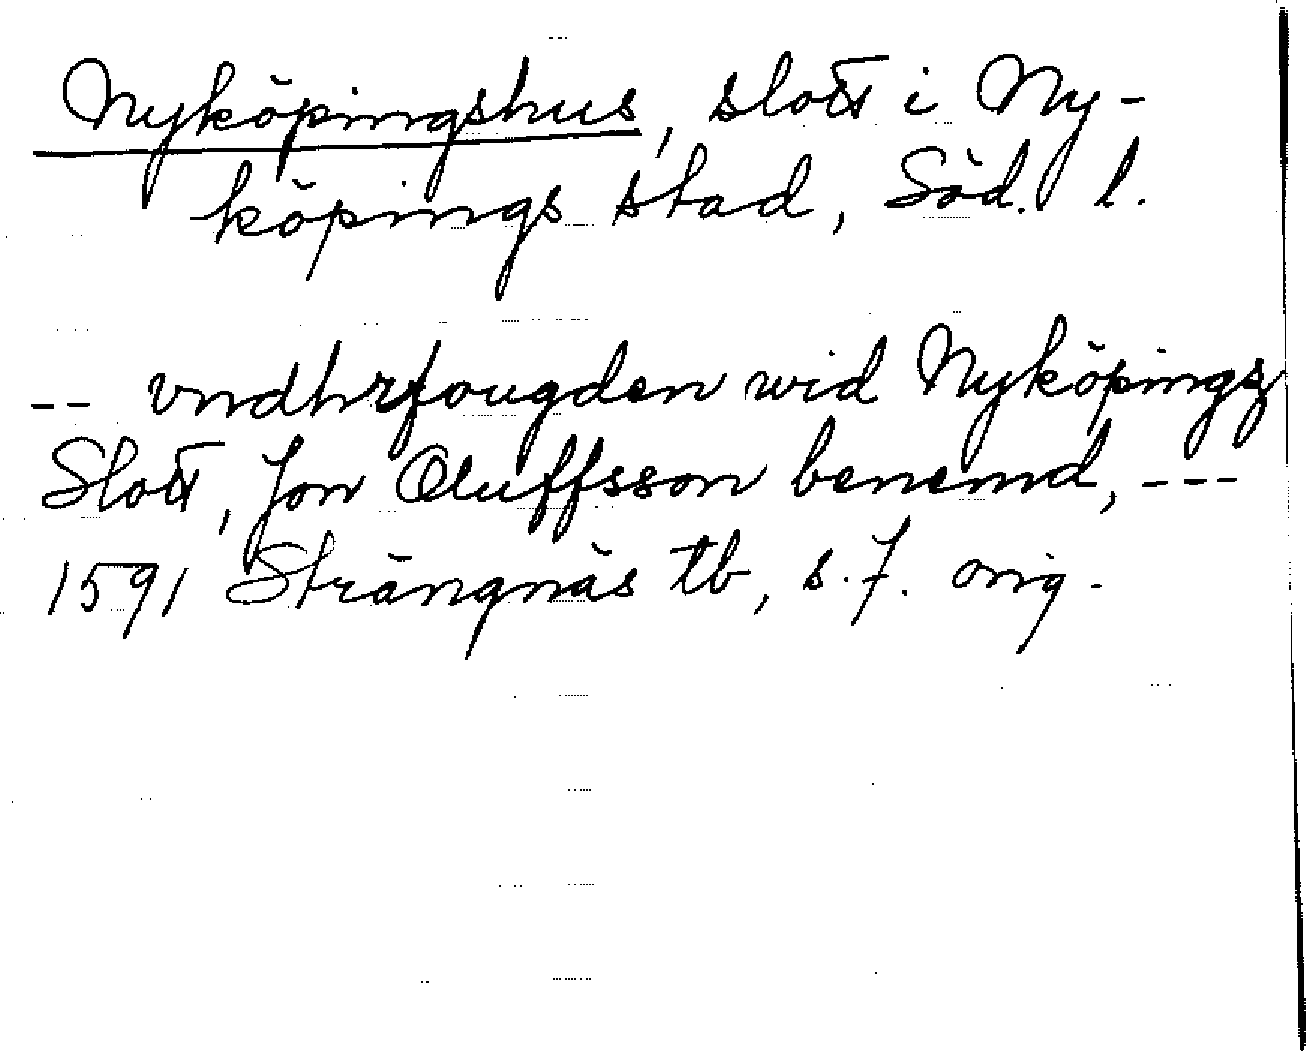 Nyköpingshus, slott i Ny-
köpings stad, Söd. l.
-- vndhrfougden wid Nyköpingz
Slott, Jon Oluffsson benemd, ---
1591 Strängnäs tb, s. 7. orig.